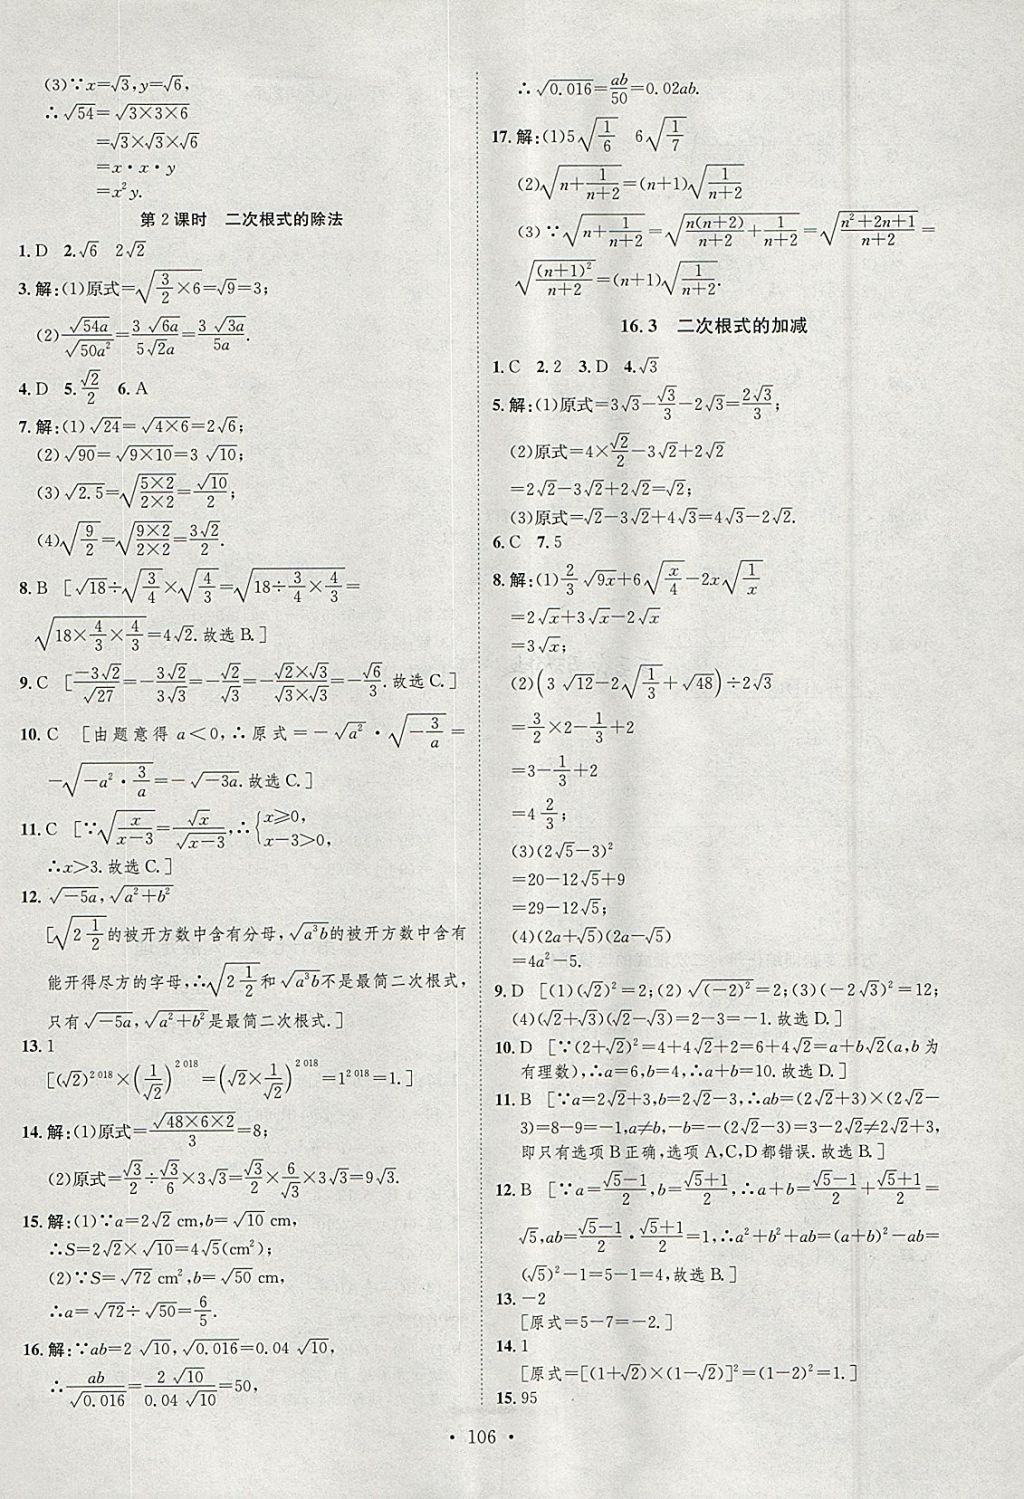 (3)∵x=√3,y=√6,
∴√54=√(3×3×6)
=√3×√3×√6
=x·x·y
=x²y.
第2课时 二次根式的除法
1.D 2.√6 2√2
3.解:(1)原式=√(3/2×6)=√9=3;
(2)√(54a)/√(50a²)=3√(6a)/(5√2a)=3√(3a)/5a.
4.D 5.√2/2 6.A
7.解:(1)√24=√(4×6)=2√6;
(2)√90=√(9×10)=3√10;
(3)√2.5=√((5×2)/(2×2))=√10/2;
(4)√(9/2)=√((9×2)/(2×2))=3√2/2.
8.B [√18÷√(3/4)×√(4/3)=√(18÷3/4×4/3)=
√(18×4/3×4/3)=4√2.故选B.]
9.C [−3√2/√27=−3√2/(3√3)=−√2/√3=−(√2×√3)/(√3×√3)=−√6/3.故选C.]
10.C [由题意得a<0,∴原式=−√(a²)·√(−3/a)=
−√(−a²·3/a)=−√(−3a).故选C.]
11.C [∵√(x/(x−3))=√x/√(x−3),∴{x≥0, x−3>0,
∴x>3.故选C.]
12.√(−5a),√(a²+b²)
[√(2 1/2)的被开方数中含有分母,√(a³b)的被开方数中含有
能开得尽方的字母,∴√(2 1/2)和√(a³b)不是最简二次根式,
只有√(−5a),√(a²+b²)是最简二次根式.]
13.1
[(√2)^2 018×(1/√2)^2 018=(√2×1/√2)^2 018=1^2 018=1.]
14.解:(1)原式=√(48×6×2)/3=8;
(2)原式=√3/2÷√3/6×3√3=√3/2×6/√3×3√3=9√3.
15.解:(1)∵a=2√2 cm,b=√10 cm,
∴S=2√2×√10=4√5(cm²);
(2)∵S=√72 cm²,b=√50 cm,
∴a=√72÷√50=6/5.
16.解:∵ab=2√10,√0.016=0.04√10,
∴ab/√0.016=2√10/(0.04√10)=50,
∴√0.016=ab/50=0.02ab.
17.解:(1)5√(1/6) 6√(1/7)
(2)√(n+1/(n+2))=(n+1)√(1/(n+2))
(3)∵√(n+1/(n+2))=√(n(n+2)/(n+2)+1/(n+2))=√((n²+2n+1)/(n+2))=
√((n+1)²/(n+2))=(n+1)√(1/(n+2)).
16.3 二次根式的加减
1.C 2.2 3.D 4.√3
5.解:(1)原式=3√3−√3/3−2√3=2√3/3;
(2)原式=4×√2/2−3√2+2√2
=2√2−3√2+2√2=√2;
(3)原式=√2−3√2+4√3=4√3−2√2.
6.C 7.5
8.解:(1)2/3√(9x)+6√(x/4)−2x√(1/x)
=2√x+3√x−2√x
=3√x;
(2)(3√12−2√(1/3)+√48)÷2√3
=3/2×2−1/3+2
=3−1/3+2
=4 2/3;
(3)(2√5−3)²
=20−12√5+9
=29−12√5;
(4)(2a+√5)(2a−√5)
=4a²−5.
9.D [(1)(√2)²=2;(2)√((−2)²)=2;(3)(−2√3)²=12;
(4)(√2+√3)(√2−√3)=2−3=−1.故选D.]
10.D [∵(2+√2)²=4+4√2+2=6+4√2=a+b√2(a,b为
有理数),∴a=6,b=4,∴a+b=10.故选D.]
11.B [∵a=2√2+3,b=2√2−3,∴ab=(2√2+3)×(2√2−
3)=8−9=−1,a≠b,−b=−(2√2−3)=3−2√2≠a,
即只有选项B正确,选项A,C,D都错误.故选B.]
12.B [∵a=(√5−1)/2,b=(√5+1)/2,∴a+b=(√5−1)/2+(√5+1)/2=
√5,ab=(√5−1)/2·(√5+1)/2=1,∴a²+b²+ab=(a+b)²−ab=
(√5)²−1=5−1=4,故选B.]
13.−2
[原式=5−7=−2.]
14.1
[原式=[(1+√2)×(1−√2)]²=(1−2)²=1.]
15.95
·106·